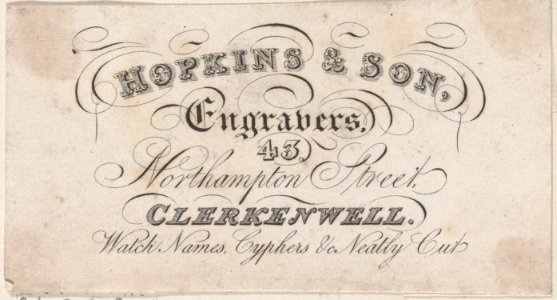 HOPKINS & SON,
Engravers.
43,
Northampton Street,
CLERKENWELL.
Watch Names, Cyphers &c. Neatly Cut